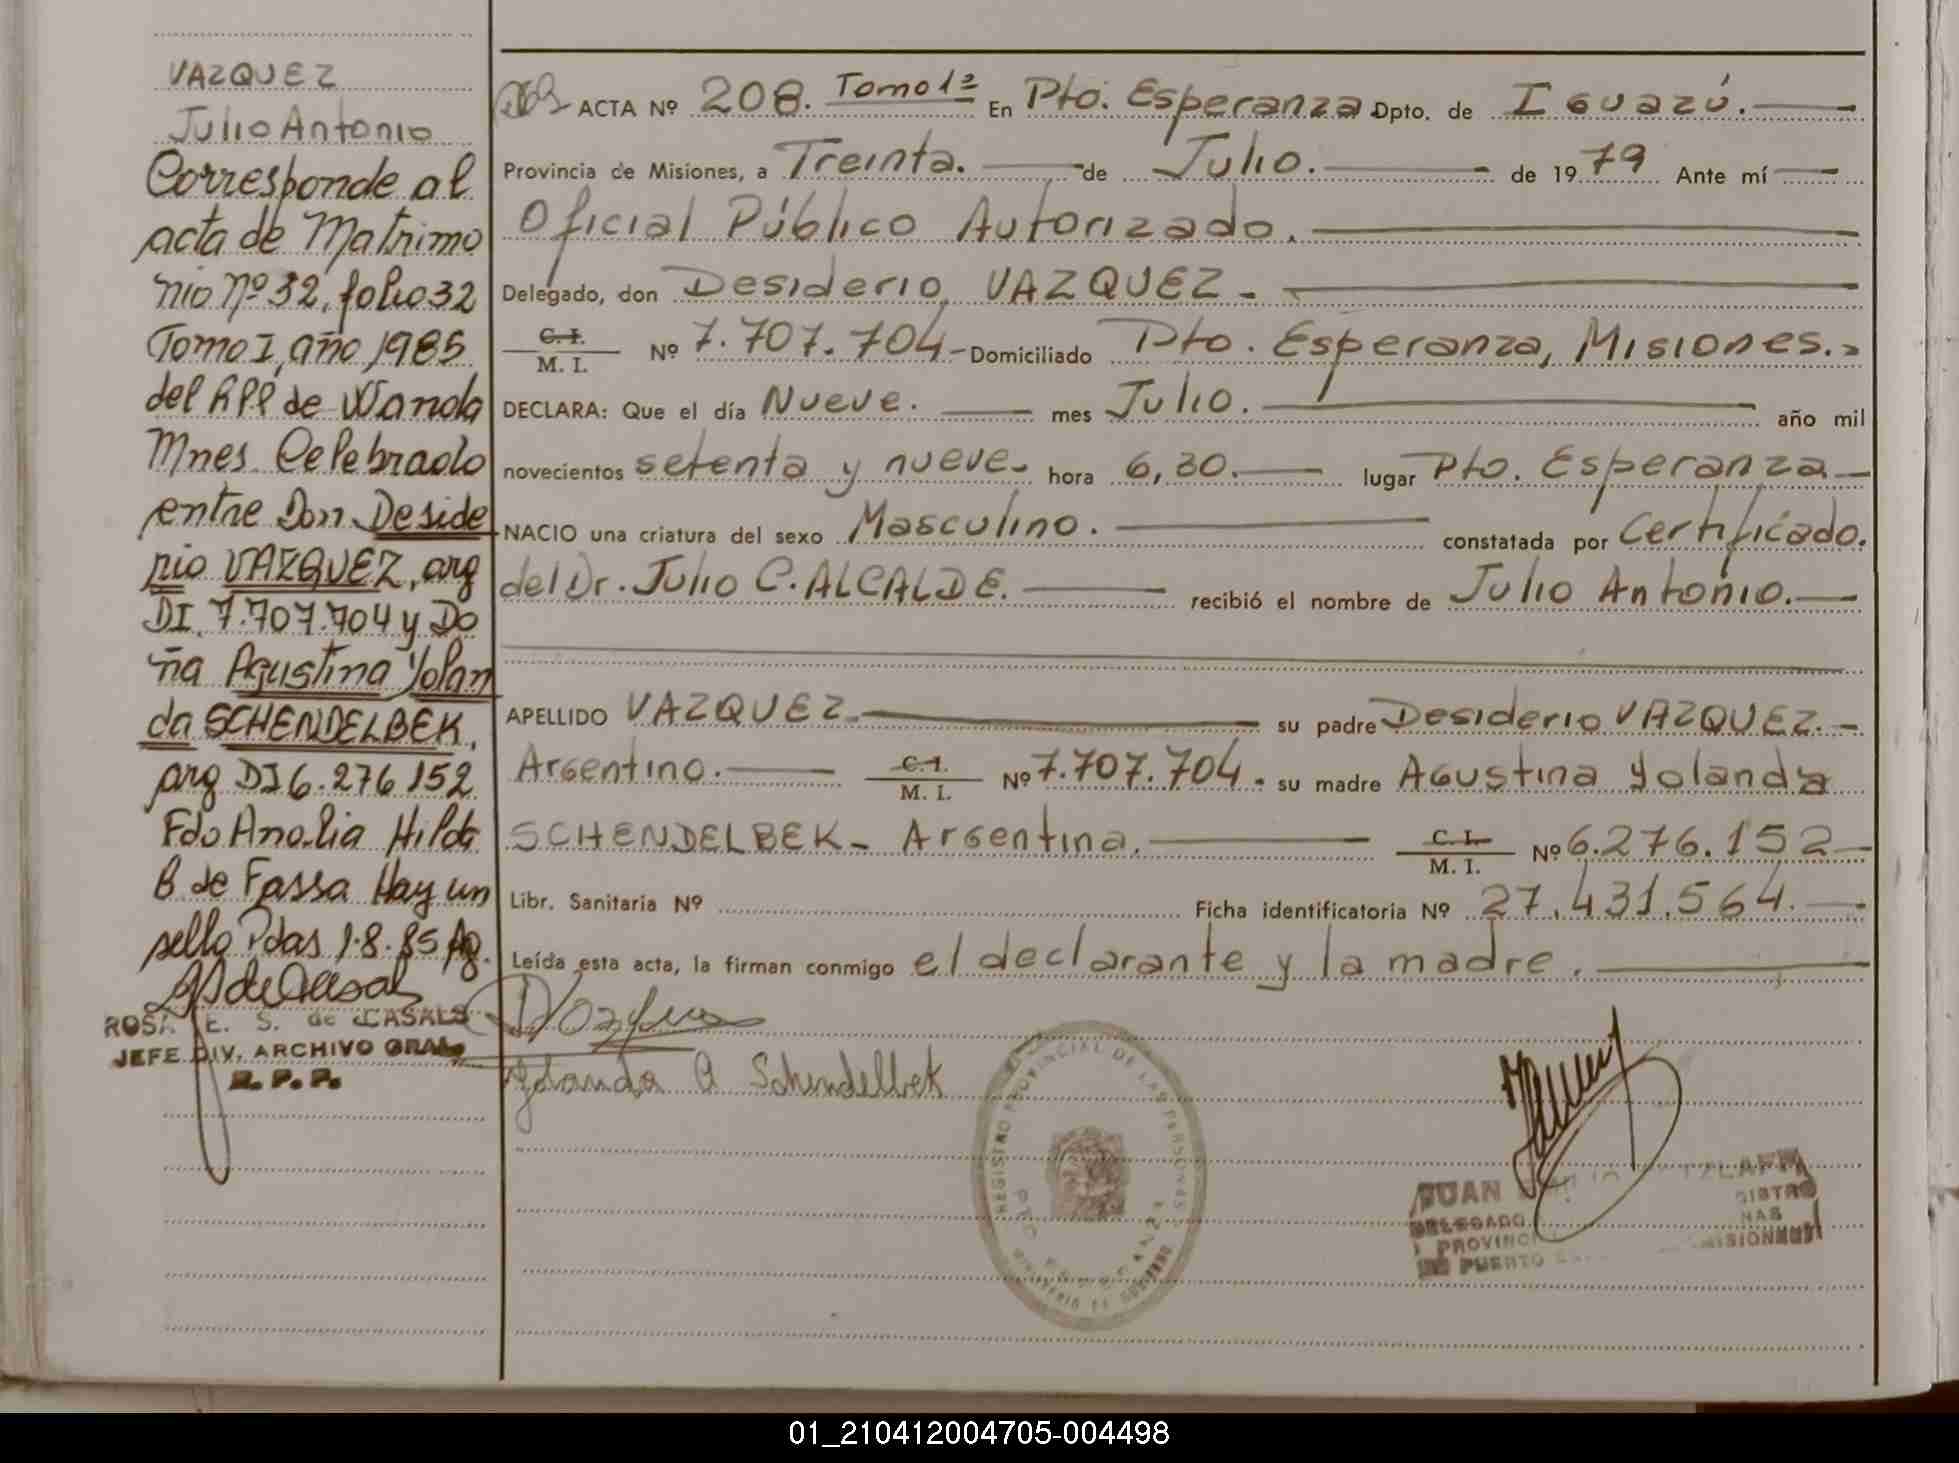 VAZQUEZ
Julio Antonio
Corresponde al
acta de Matrimo
nio Nº 32, folio 32
Tomo I, año 1985
del RPP de Wanda
Mnes Celebrado
entre Don Deside
rio VAZQUEZ, arg
DI. 7.707.704 y Do
ña Agustina Yolan
da SCHENDELBEK,
arg DI 6.276.152
Fdo Analia Hilda
B de Fassa Hay un
sello Pdas 1.8.85
ROSA E. S. de CASALS
JEFE DIV. ARCHIVO GRAL.
R. P. P.
ACTA Nº 208. Tomo 1º En Pto. Esperanza Dpto. de Iguazú.
Provincia de Misiones, a Treinta. de Julio. de 1979 Ante mí
Oficial Público Autorizado.
Delegado, don Desiderio VAZQUEZ -
C. I. / M. I. Nº 7.707.704 - Domiciliado Pto. Esperanza, Misiones.-
DECLARA: Que el día Nueve. mes Julio. año mil
novecientos setenta y nueve. hora 6,30. lugar Pto. Esperanza
NACIO una criatura del sexo Masculino. constatada por Certificado.
del Dr. Julio C. ALCALDE. recibió el nombre de Julio Antonio.
APELLIDO VAZQUEZ. su padre Desiderio VAZQUEZ.-
Argentino. C. I. / M. I. Nº 7.707.704. su madre Agustina Yolanda
SCHENDELBEK - Argentina. C. I. / M. I. Nº 6.276.152
Libr. Sanitaria Nº Ficha identificatoria Nº 27.431.564.
Leída esta acta, la firman conmigo el declarante y la madre.
Yolanda A Schendelbek
REGISTRO PROVINCIAL DE LAS PERSONAS
MINISTERIO DE GOBIERNO
JUAN
DELEGADO
PUERTO
01_210412004705-004498